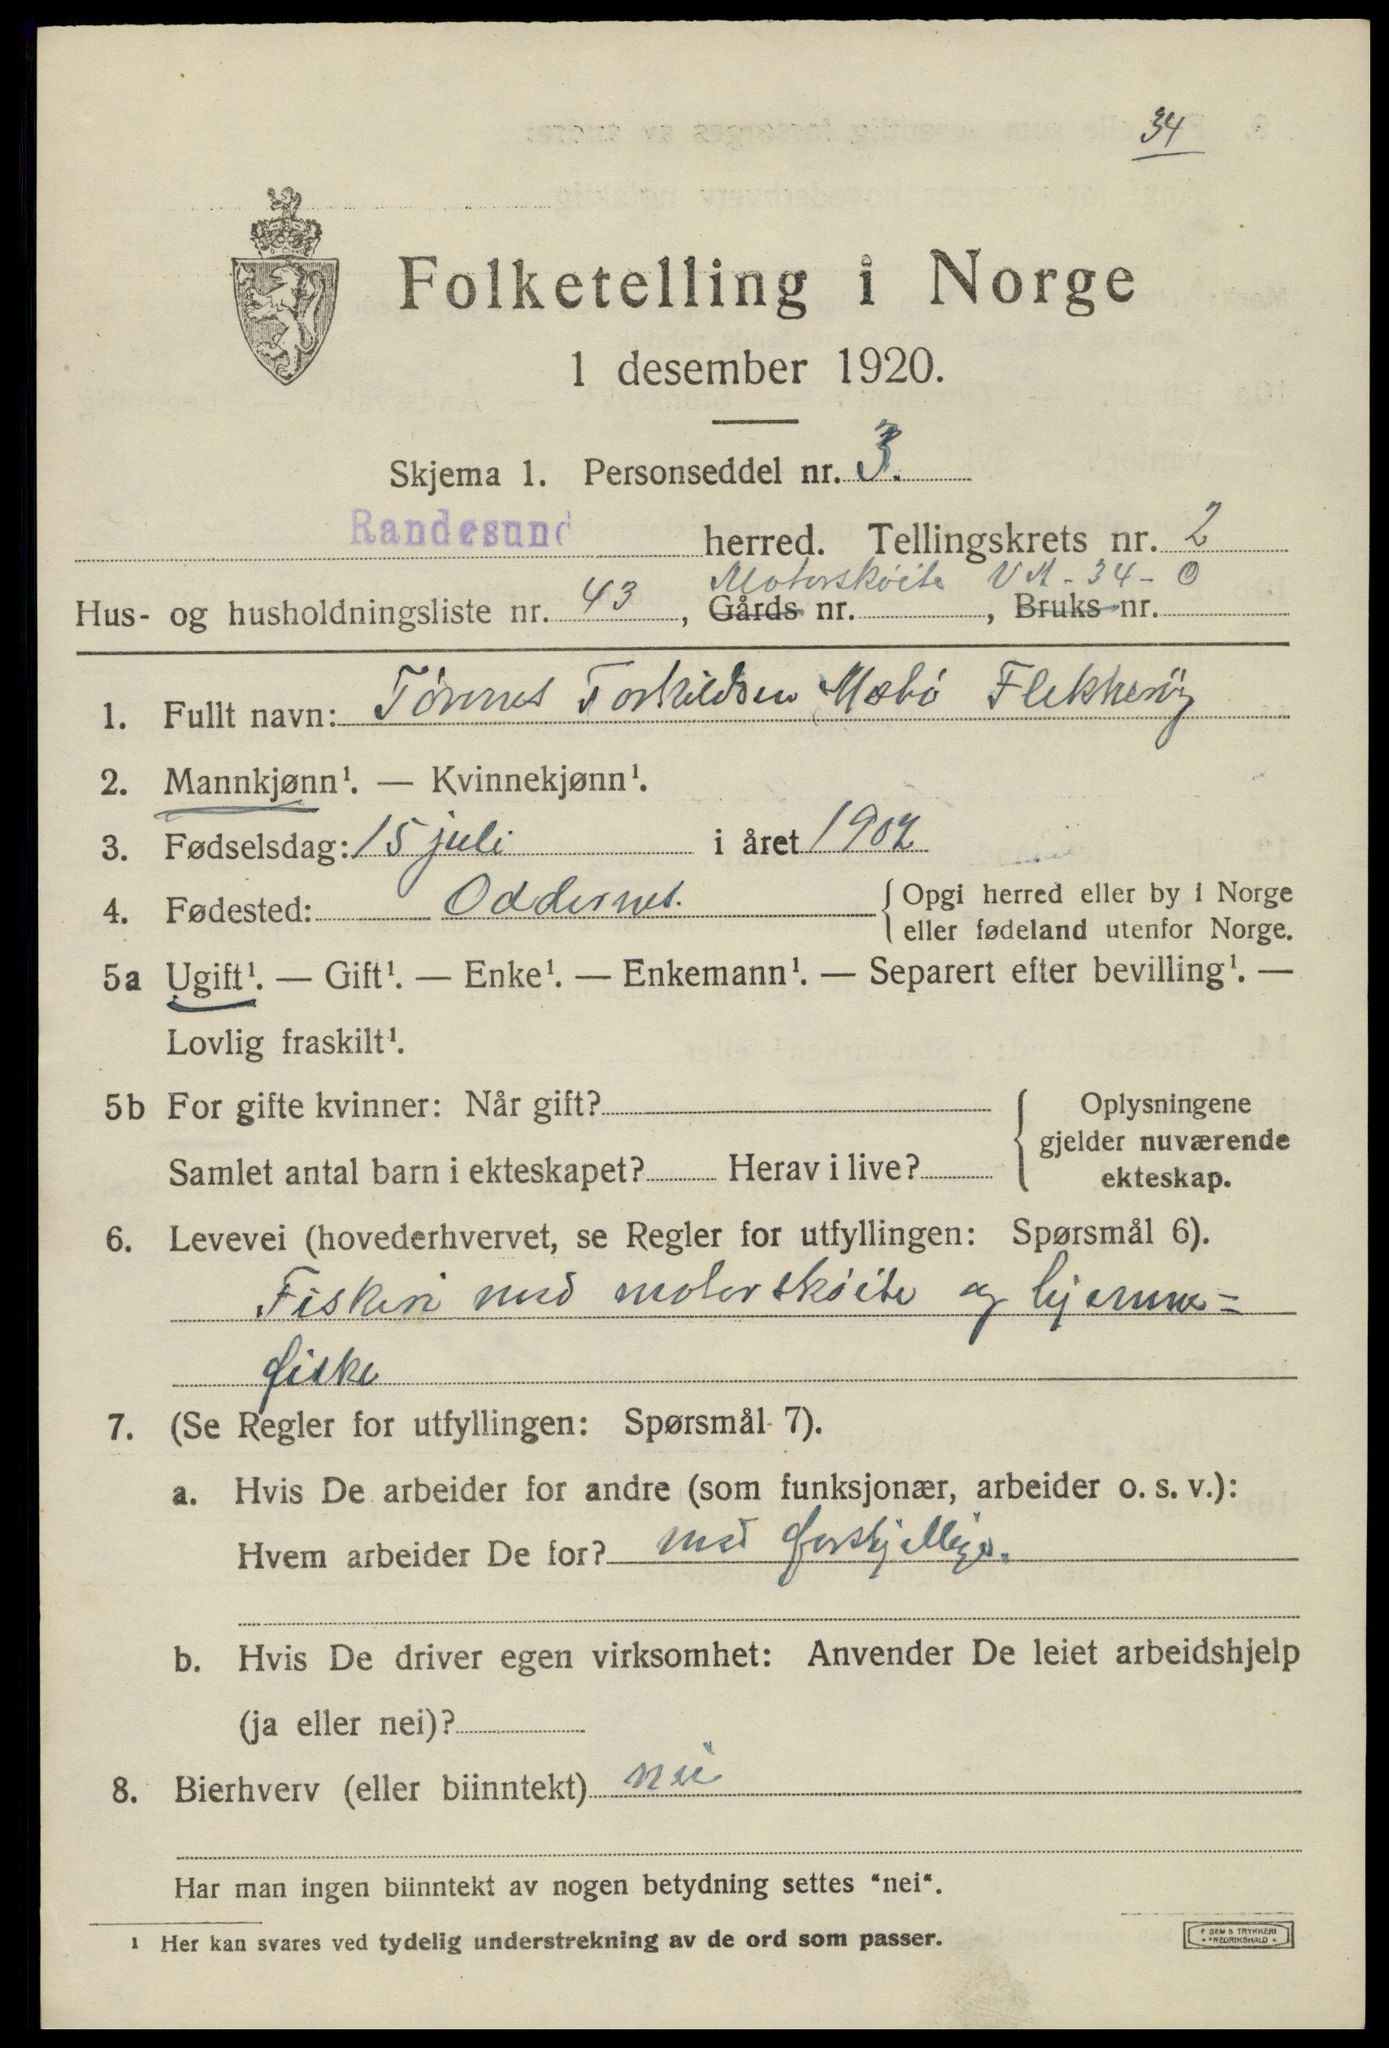 34
Folketelling i Norge
1 desember 1920.
Skjema 1. Personseddel nr. 3.
Randesund herred. Tellingskrets nr. 2
Motorskøite VA - 34 - O
Hus- og husholdningsliste nr. 43, Gårds nr. , Bruks nr.
1. Fullt navn: Tønnes Torkildsen Mæbø Flekkerøy
2. Mannkjønn¹. — Kvinnekjønn¹.
3. Fødselsdag: 15 juli i året 1902
4. Fødested: Oddernes. { Opgi herred eller by i Norge
eller fødeland utenfor Norge.
5a Ugift¹. — Gift¹. — Enke¹. — Enkemann¹. — Separert efter bevilling¹. —
Lovlig fraskilt¹.
5b For gifte kvinner: Når gift? { Oplysningene
gjelder nuværende
Samlet antal barn i ekteskapet? Herav i live? ekteskap.
6. Levevei (hovederhvervet, se Regler for utfyllingen: Spørsmål 6).
Fiskeri med motorskøite og hjemme-
fiske
7. (Se Regler for utfyllingen: Spørsmål 7).
a. Hvis De arbeider for andre (som funksjonær, arbeider o. s. v.):
Hvem arbeider De for? med forskjellige.
b. Hvis De driver egen virksomhet: Anvender De leiet arbeidshjelp
(ja eller nei)?
8. Bierhverv (eller biinntekt) nei
Har man ingen biinntekt av nogen betydning settes "nei".
¹ Her kan svares ved tydelig understrekning av de ord som passer.
SEM S TRYKKERI
FREDRIKSHALD